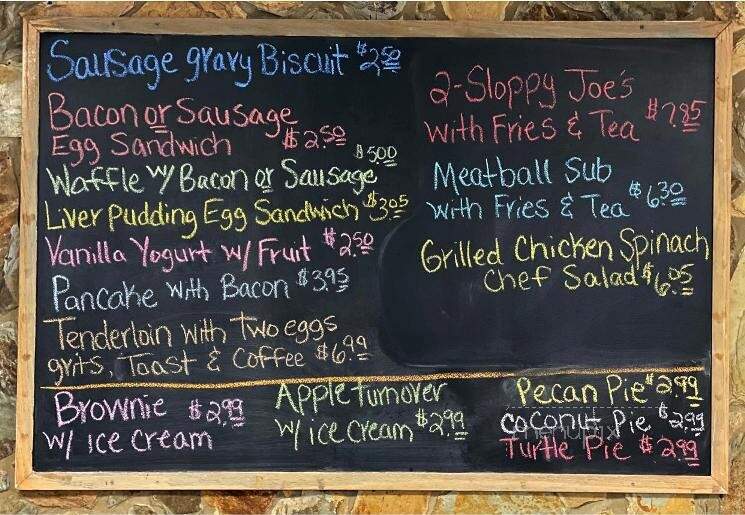 Sausage gravy Biscuit $2.50
Bacon or Sausage
Egg Sandwich $2.50
Waffle w/ Bacon or Sausage $5.00
Liver pudding Egg Sandwich $3.05
Vanilla Yogurt w/ Fruit $2.50
Pancake with Bacon $3.95
Tenderloin with Two eggs
grits, Toast & Coffee $6.99
2-Sloppy Joe's
with Fries & Tea $7.85
Meatball Sub
with Fries & Tea $6.30
Grilled Chicken Spinach
Chef Salad $6.05
Brownie $2.99
w/ ice cream
Apple turnover
w/ ice cream $2.99
Pecan Pie $2.99
coconut Pie $2.99
Turtle Pie $2.99